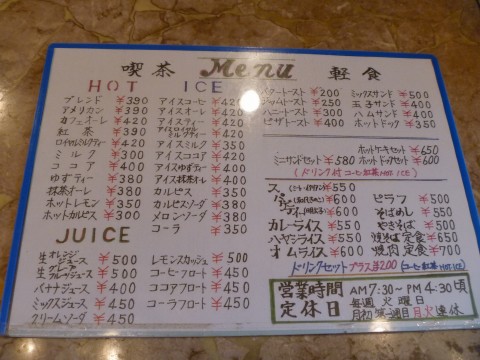 喫茶 Menu 軽食
HOT ICE
ブレンド ¥390
アメリカン ¥390
カフェオーレ ¥420
紅茶 ¥390
ロイヤルミルクティー ¥420
ミルク ¥300
ココア ¥400
ゆずティー ¥380
抹茶オーレ ¥380
ホットレモン ¥350
ホットカルピス ¥300
アイスコーヒー ¥420
アイスオーレ ¥420
アイスティー ¥420
アイスロイヤルミルクティー ¥420
アイスミルク ¥350
アイスココア ¥420
アイスゆずティー ¥400
アイス抹茶オーレ ¥400
カルピス ¥350
カルピスソーダ ¥380
メロンソーダ ¥380
コーラ ¥350
JUICE
生オレンジジュース ¥500
生グレープフルーツジュース ¥500
バナナジュース ¥400
ミックスジュース ¥450
クリームソーダ ¥450
レモンスカッシュ ¥500
コーヒーフロート ¥450
ココアフロート ¥450
コーラフロート ¥450
バタートースト ¥200
ジャムトースト ¥250
ハニートースト ¥300
ピザトースト ¥400
ミックスサンド ¥500
玉子サンド ¥400
ハムサンド ¥400
ホットドック ¥350
ホットケーキセット ¥650
ミニサンドセット ¥580 ホットドックセット ¥600
(ドリンク付 コーヒ 紅茶 HOT ICE)
¥550
¥600
¥600
カレーライス ¥550
ハヤシライス ¥550
オムライス ¥600
ピラフ ¥500
そばめし ¥550
やきそば ¥500
焼そば定食 ¥650
焼肉定食 ¥700
ドリンクセット プラス¥200 (コーヒ 紅茶 HOT ICE)
営業時間 AM7:30~PM4:30頃
定休日 毎週 火曜日
月初第一週目 月火連休